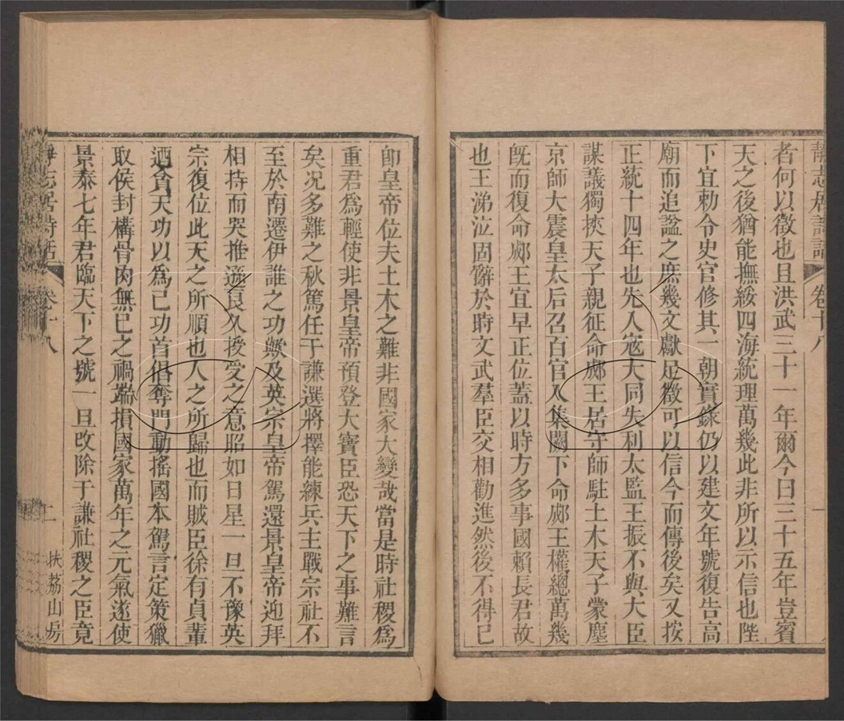 靜志居詩話 卷十八 一
者何以徵也且洪武三十一年爾今曰三十五年豈賓
天之後猶能撫綏四海統理萬幾此非所以示信也陛
下宜勅令史官修其一朝實錄仍以建文年號復告高
廟而追諡之庶幾文獻足徵可以信今而傳後矣又按
正統十四年也先入寇大同失利太監王振不與大臣
謀議獨挾天子親征命郕王居守師駐土木天子蒙塵
京師大震皇太后召百官入集闕下命郕王權總萬幾
旣而復命郕王宜早正位蓋以時方多事國賴長君故
也王涕泣固辭於時文武羣臣交相勸進然後不得已
卽皇帝位夫土木之難非國家大變哉當是時社稷爲
重君爲輕使非景皇帝預登大寶臣恐天下之事難言
矣况多難之秋篤任于謙選將擇能練兵主戰宗社不
至於南遷伊誰之功歟及英宗皇帝駕還景皇帝迎拜
相持而哭推遜良久授受之意昭如日星一旦不豫英
宗復位此天之所順也人之所歸也而賊臣徐有貞輩
迺貪天功以爲己功首倡奪門動搖國本駕言定策獵
取侯封構骨肉無已之禍踹損國家萬年之元氣遂使
景泰七年君臨天下之號一旦改除于謙社稷之臣竟
靜志居詩話 卷十八 二 扶荔山房